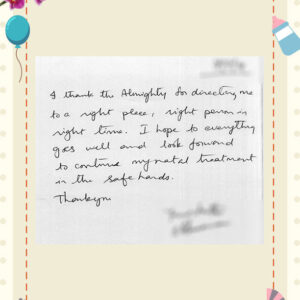 I thank the Almighty for directing me
to a right place, right person in
right time. I hope to everything
goes well and look forward
to continue my natal treatment
in the safe hands.
Thankyou